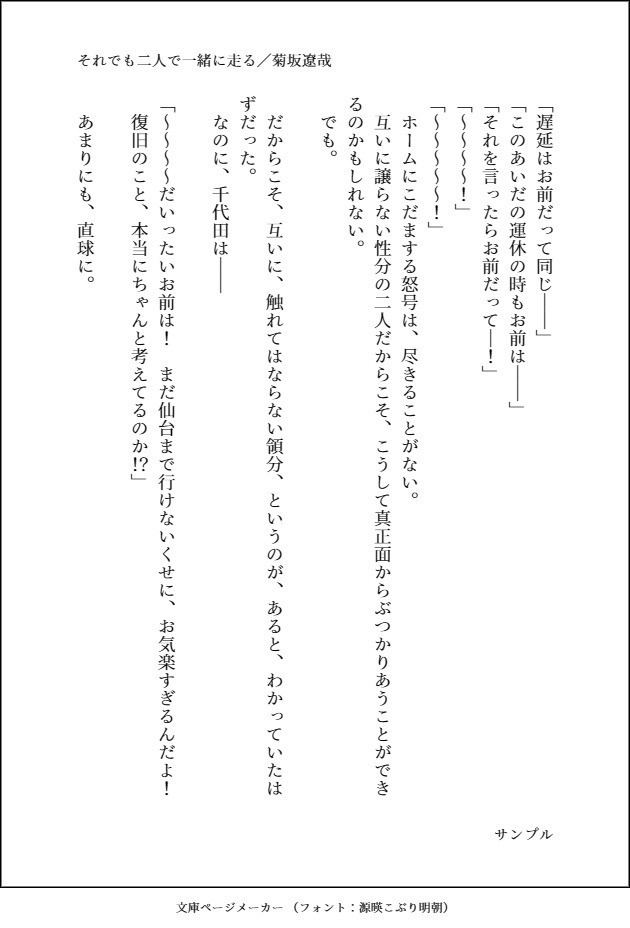 それでも二人で一緒に走る／菊坂遼哉
「遅延はお前だって同じ――」
「このあいだの運休の時もお前は――」
「それを言ったらお前だって―！」
「～～～～！」
「～～～～～！」
ホームにこだまする怒号は、尽きることがない。
互いに譲らない性分の二人だからこそ、こうして真正面からぶつかりあうことができ
るのかもしれない。
でも。
だからこそ、互いに、触れてはならない領分、というのが、あると、わかっていたは
ずだった。
なのに、千代田は――
「～～～～だいったいお前は！　まだ仙台まで行けないくせに、お気楽すぎるんだよ！
復旧のこと、本当にちゃんと考えてるのか!?」
あまりにも、直球に。
サンプル
文庫ページメーカー （フォント：源暎こぶり明朝）